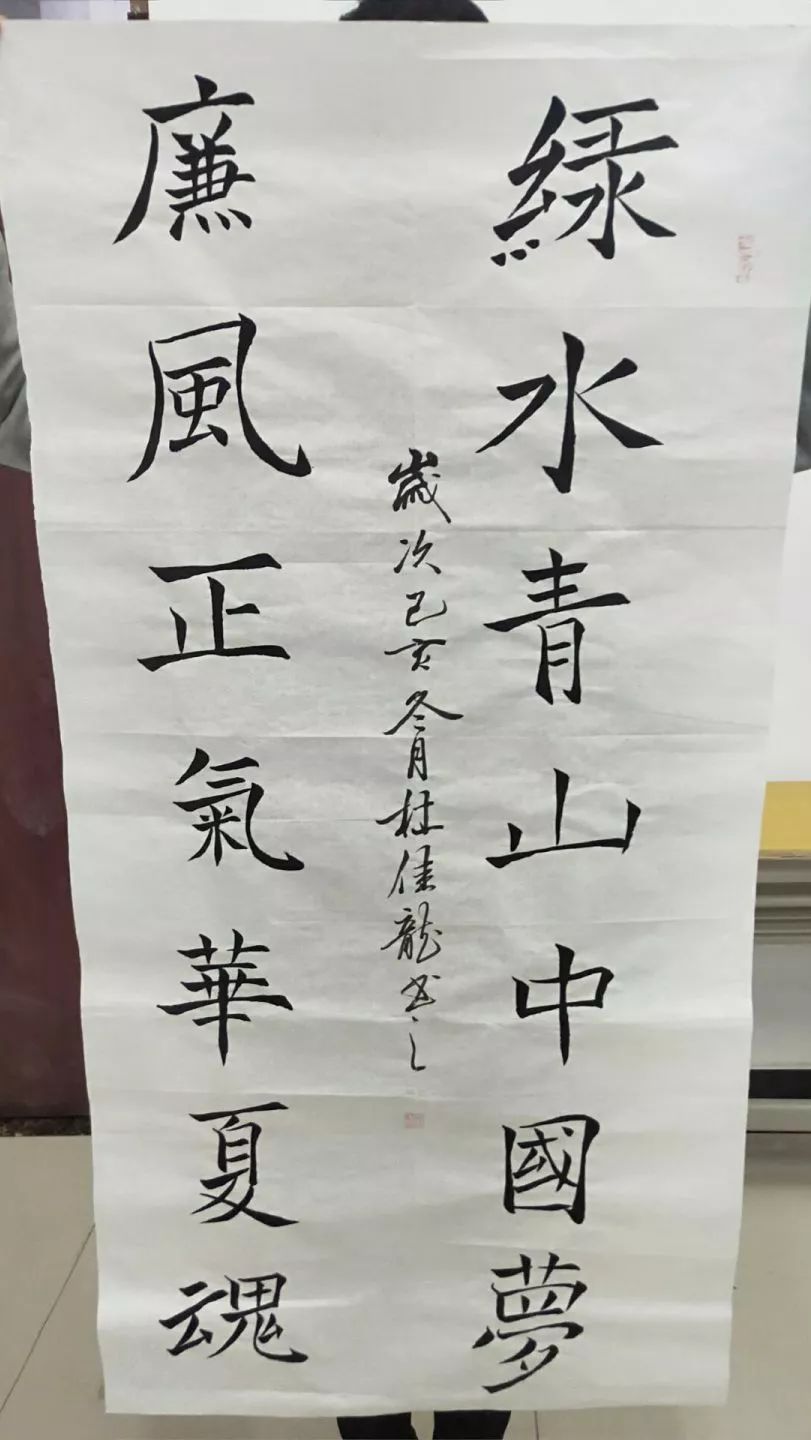 綠水青山中國夢
廉風正氣華夏魂
歲次己亥冬月杜佳龍书之